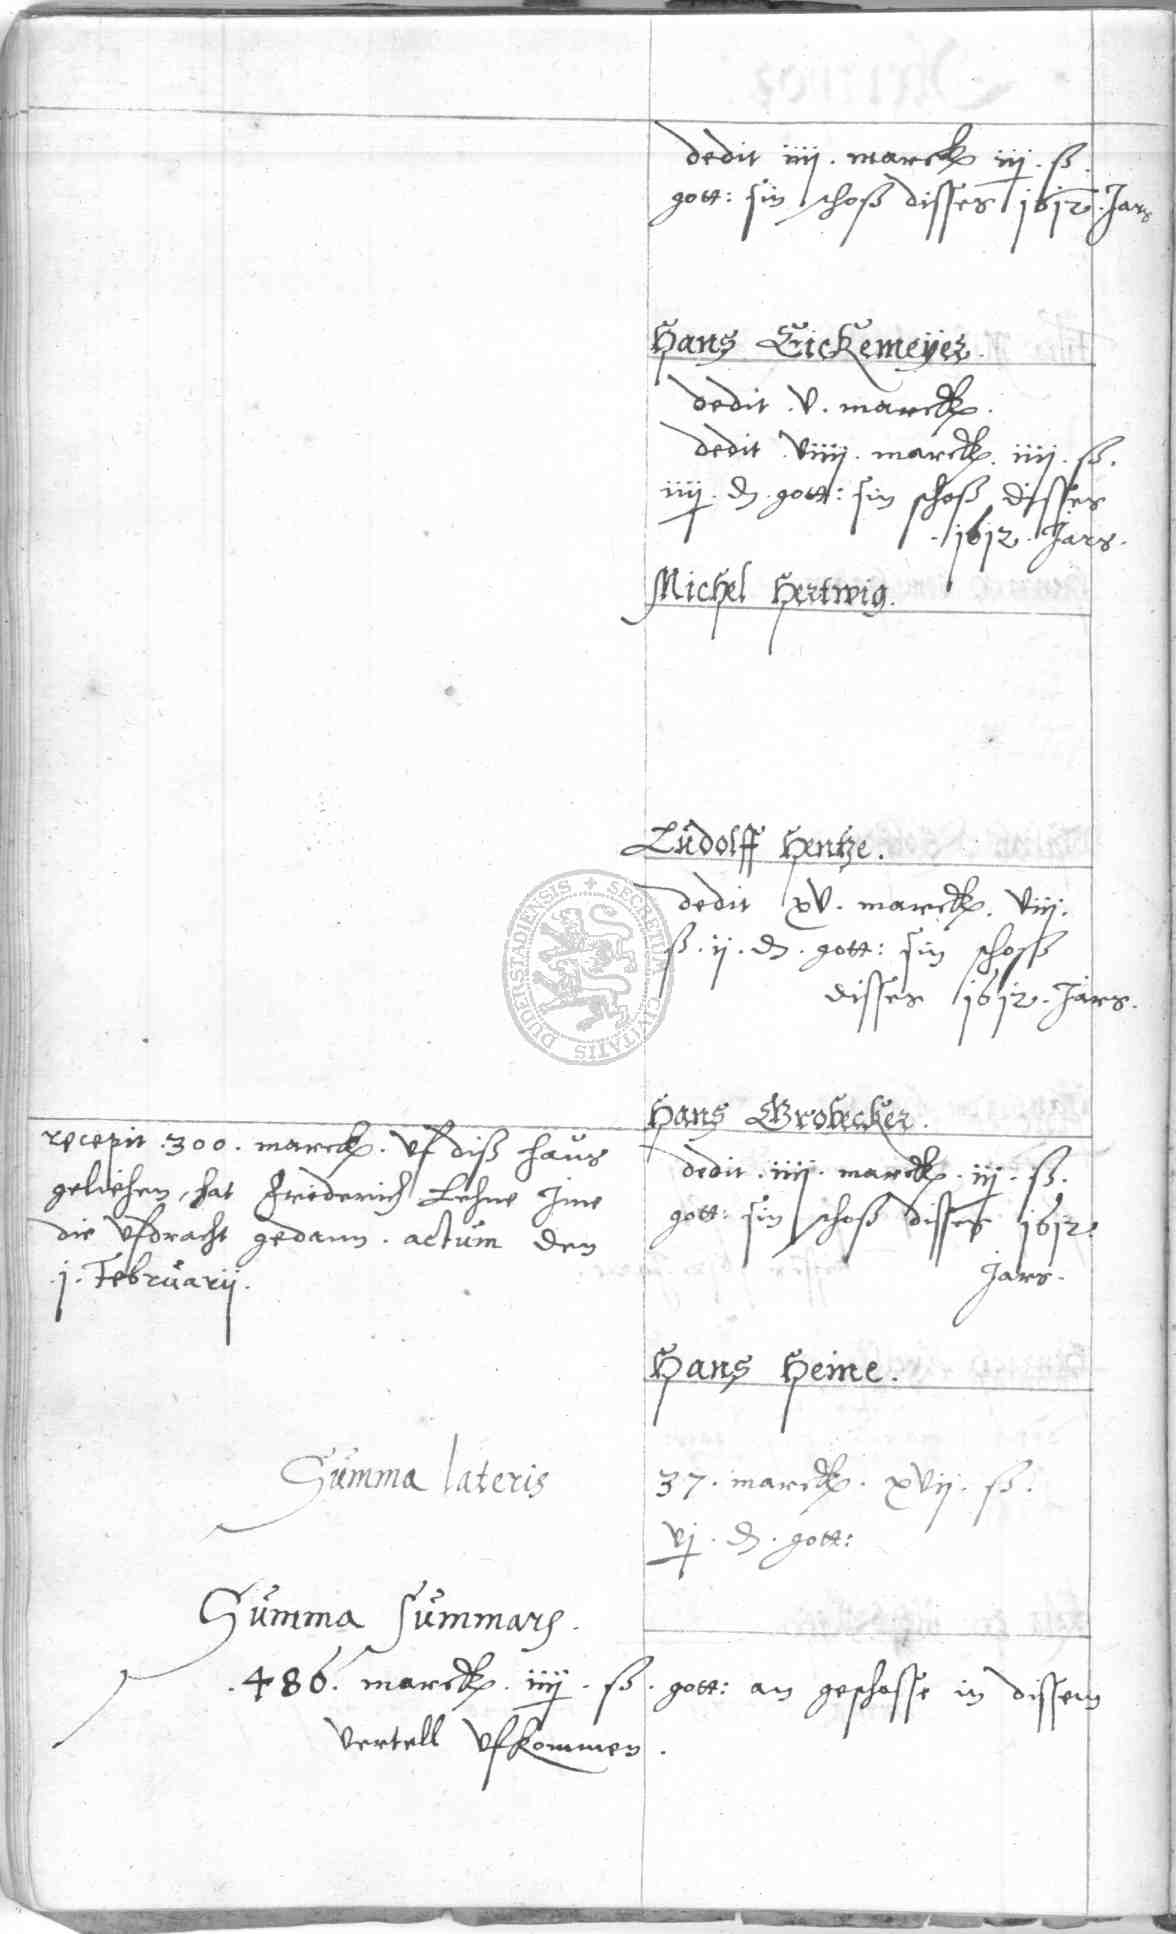 dedit iiij. marck iij. ß.
gott: sin schoß disses 1612. Jars
Hans Eickemeÿer.
dedit .v. marck.
dedit viiij. marck. iiij. ß.
iiij. d. gott: sin schoß disses
.1612. Jars.
Michel Hertwig.
Ludolff Hentze.
dedit xv. marck. viij.
ß. ij. d. gott: sin schoß
disses 1612. Jars.
Hans Grobecker.
recepit .300. marck. uf diß haus
geliehen, hat Friederich Lehne Jme
die ufdracht gedann. actum den
.j. Februarij.
dedit .iiij. marck. iij. ß.
gott: sin schoß disses 1612.
Jars.
Hans Heine.
Summa lateris
37. marck. xvij. ß.
vj. d. gott:
Summa summarum.
.486. marck. iiij. ß. gott: an geschosse in dissem
vertell ufkommen.
SECRETUM CIVITATIS DUDERSTADIENSIS